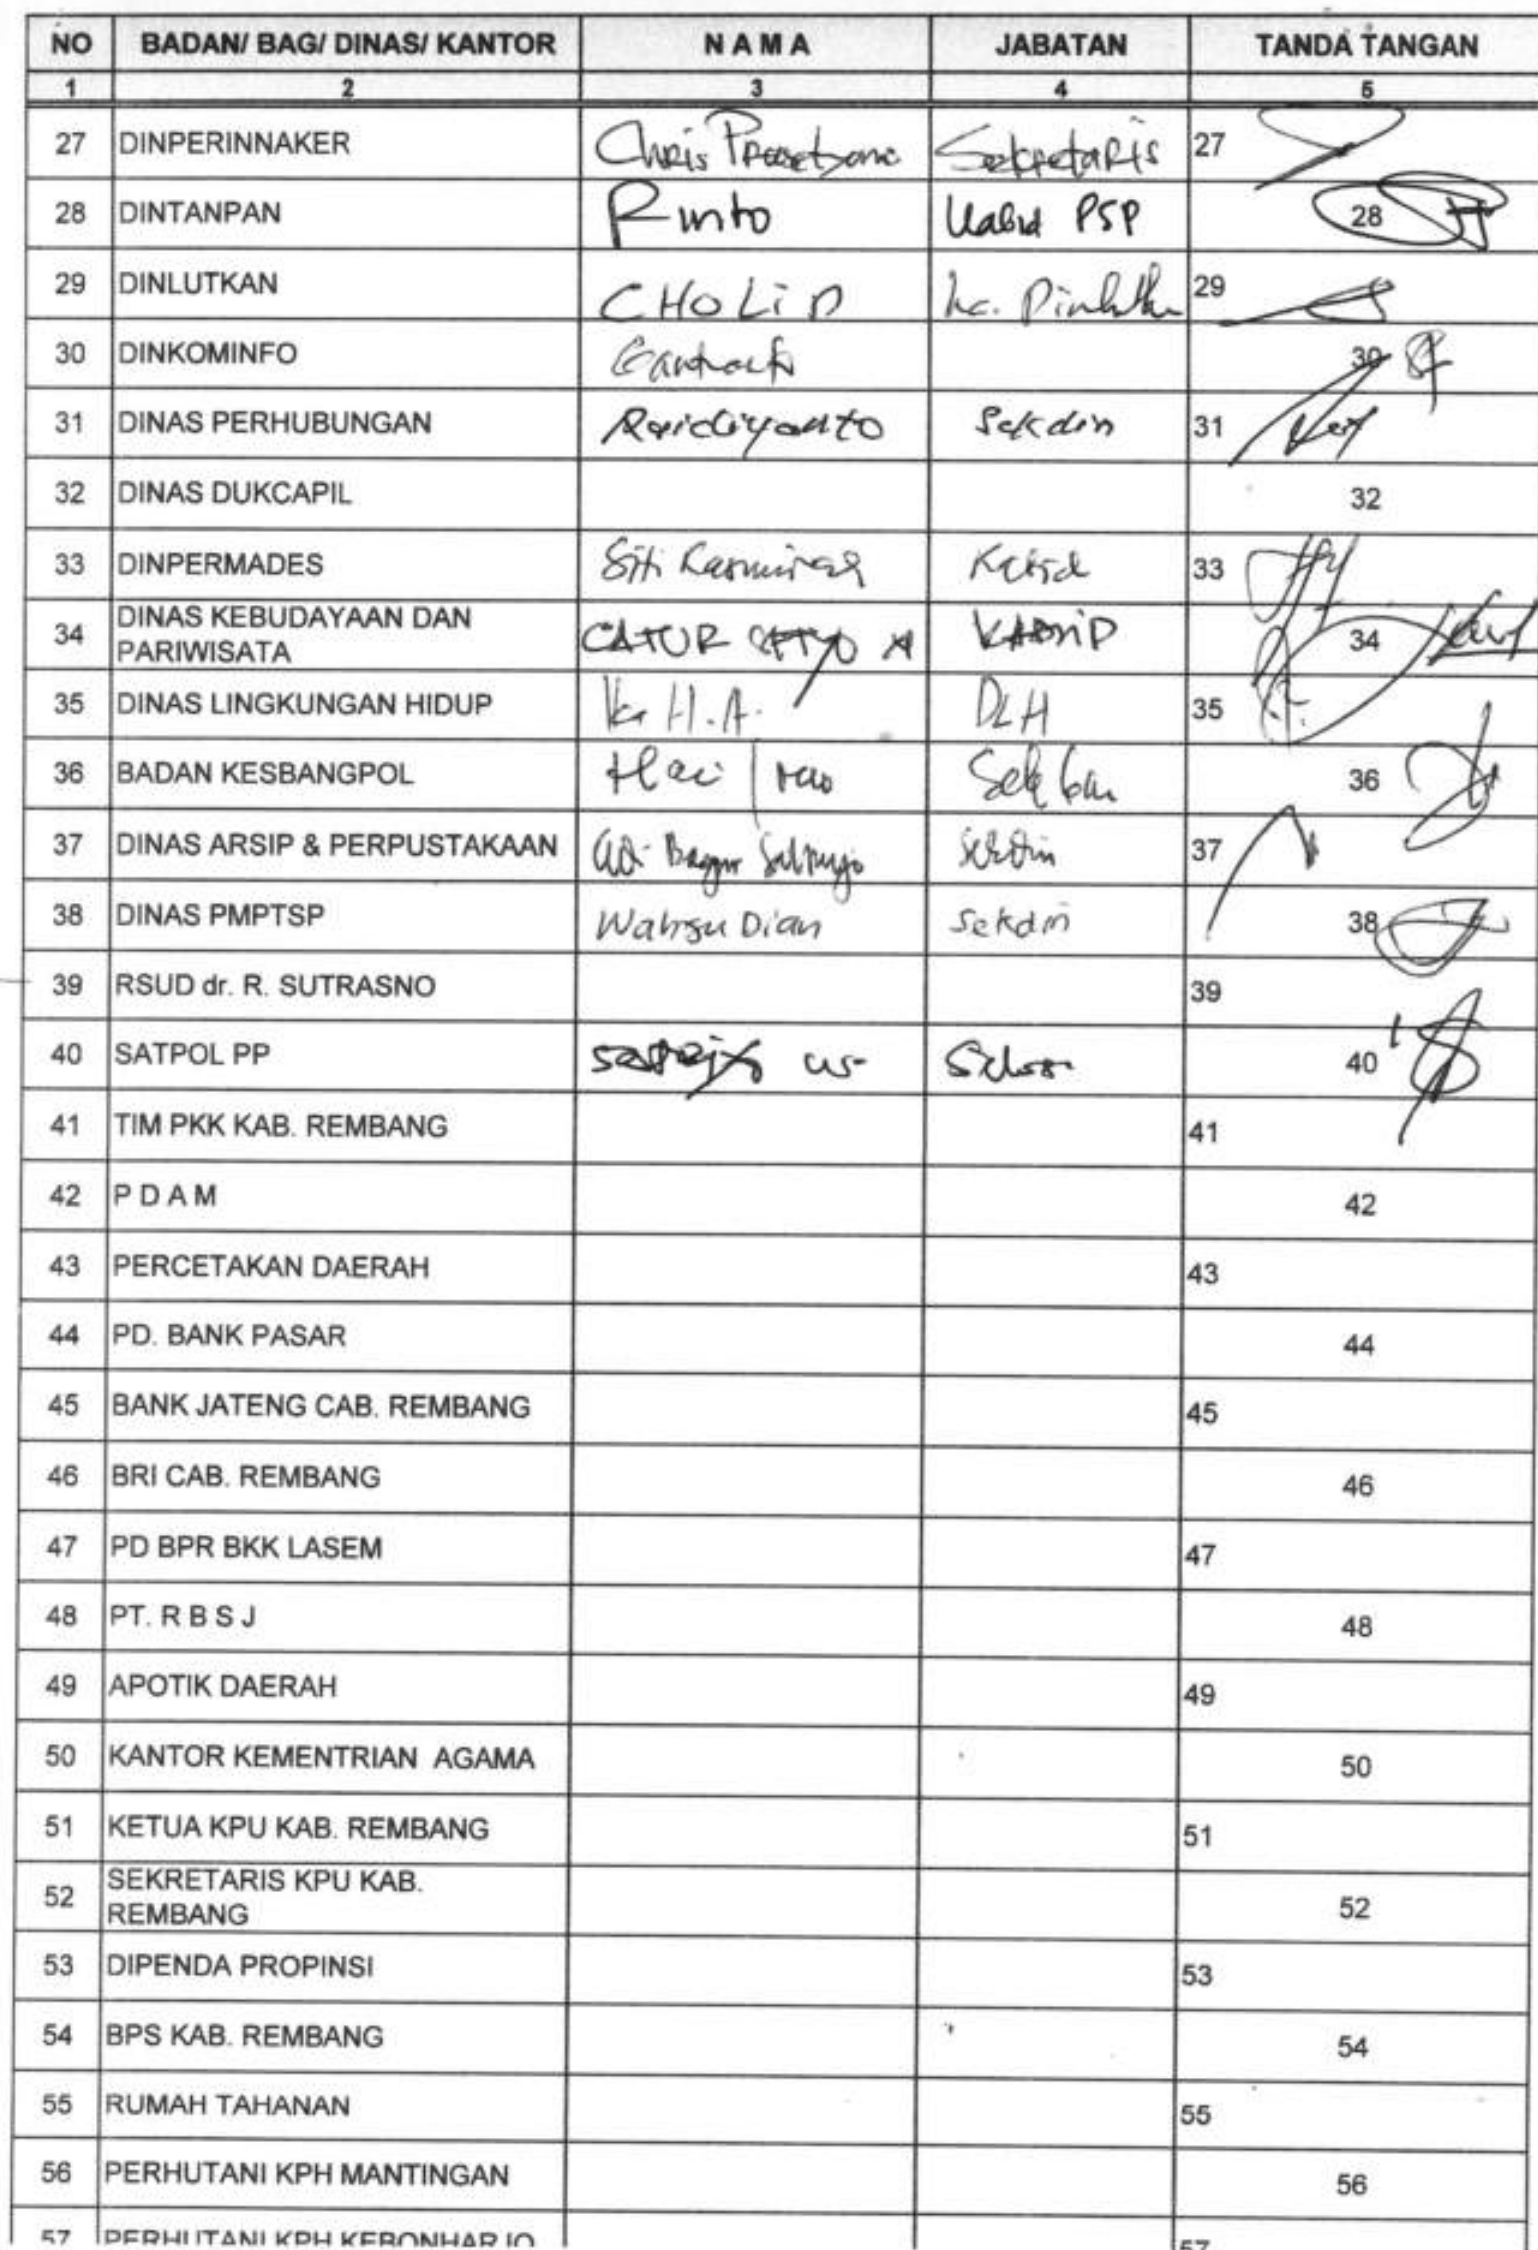 NO BADAN/ BAG/ DINAS/ KANTOR N A M A JABATAN TANDA TANGAN
1 2 3 4 5
27 DINPERINNAKER Chris Prasetyono Sekretaris 27
28 DINTANPAN Rinto Kabid PSP 28
29 DINLUTKAN CHOLiD 29
30 DINKOMINFO 30
31 DINAS PERHUBUNGAN Sekdin 31
32 DINAS DUKCAPIL 32
33 DINPERMADES Siti Kabid 33
34 DINAS KEBUDAYAAN DAN
PARIWISATA CATUR 34
35 DINAS LINGKUNGAN HIDUP H.A. DLH 35
36 BADAN KESBANGPOL 36
37 DINAS ARSIP & PERPUSTAKAAN Sekdin 37
38 DINAS PMPTSP Wahyu Dian Sekdin 38
39 RSUD dr. R. SUTRASNO 39
40 SATPOL PP 40
41 TIM PKK KAB. REMBANG 41
42 P D A M 42
43 PERCETAKAN DAERAH 43
44 PD. BANK PASAR 44
45 BANK JATENG CAB. REMBANG 45
46 BRI CAB. REMBANG 46
47 PD BPR BKK LASEM 47
48 PT. R B S J 48
49 APOTIK DAERAH 49
50 KANTOR KEMENTRIAN AGAMA 50
51 KETUA KPU KAB. REMBANG 51
52 SEKRETARIS KPU KAB.
REMBANG 52
53 DIPENDA PROPINSI 53
54 BPS KAB. REMBANG 54
55 RUMAH TAHANAN 55
56 PERHUTANI KPH MANTINGAN 56
57 PERHUTANI KPH KEBONHARJO 57